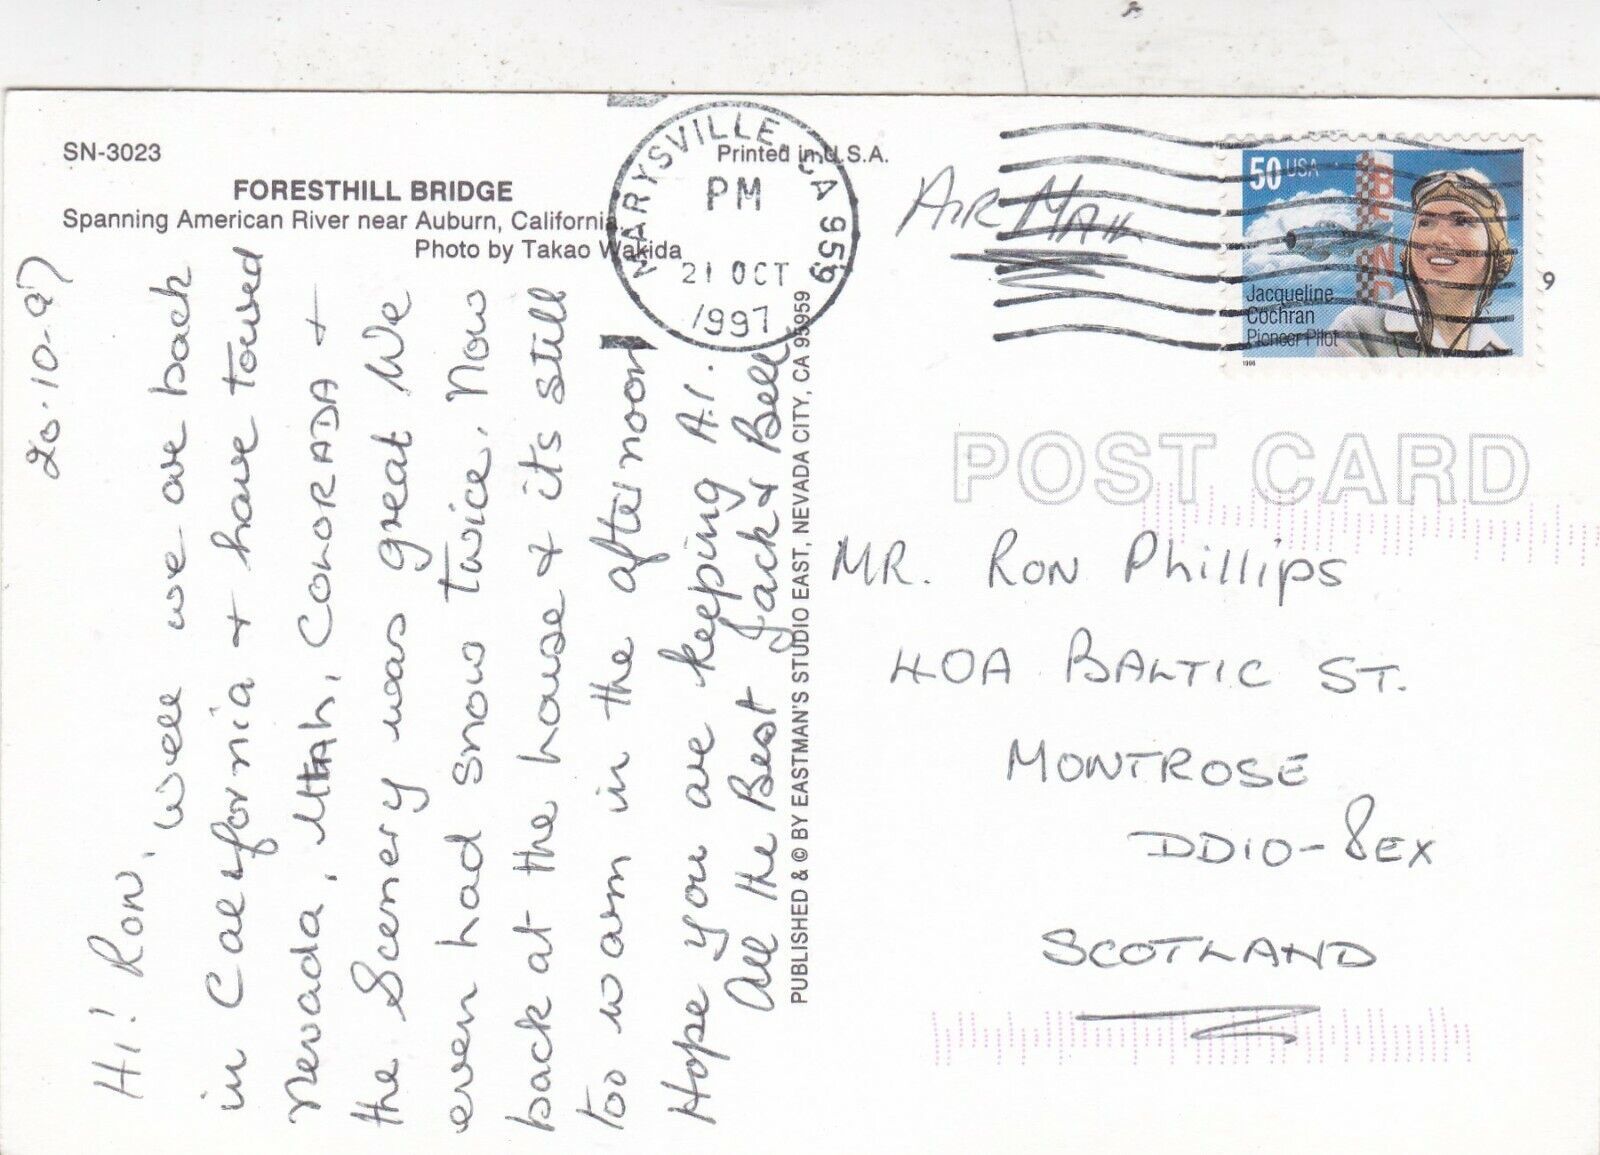 SN-3023
Printed in U.S.A.
FORESTHILL BRIDGE
Spanning American River near Auburn, California
Photo by Takao Wakida
MARYSVILLE, CA 959
PM
21 OCT
1997
AIR MAIL
50 USA
BENDIX
Jacqueline
Cochran
Pioneer Pilot
1996
9
20.10.97
Hi! Ron,
Well we are back
in California & have toured
Nevada, Utah, COLORADA &
the Scenery was great We
even had snow twice. Now
back at the house & it's still
too warm in the afternoon
Hope you are keeping A.1.
All the Best Jack & Bell
PUBLISHED & © BY EASTMAN'S STUDIO EAST, NEVADA CITY, CA 95959
POST CARD
MR. RON Phillips
40A BALTIC ST.
MONTROSE
DD10-8EX
SCOTLAND